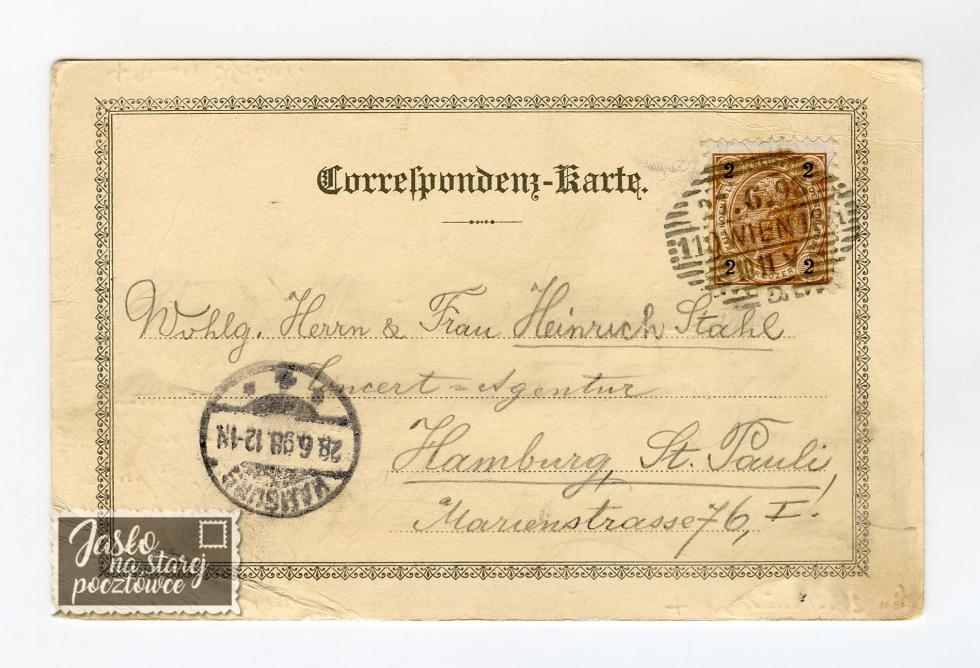 Correspondenz-Karte.
2 2
WIEN
2 2
Wohlg. Herrn & Frau Heinrich Stahl
Concert=Agentur
Hamburg, St. Pauli,
Marienstrasse 76, I.!
HAMBURG
28.6.98.12-1N
Jasło
na starej
pocztówce